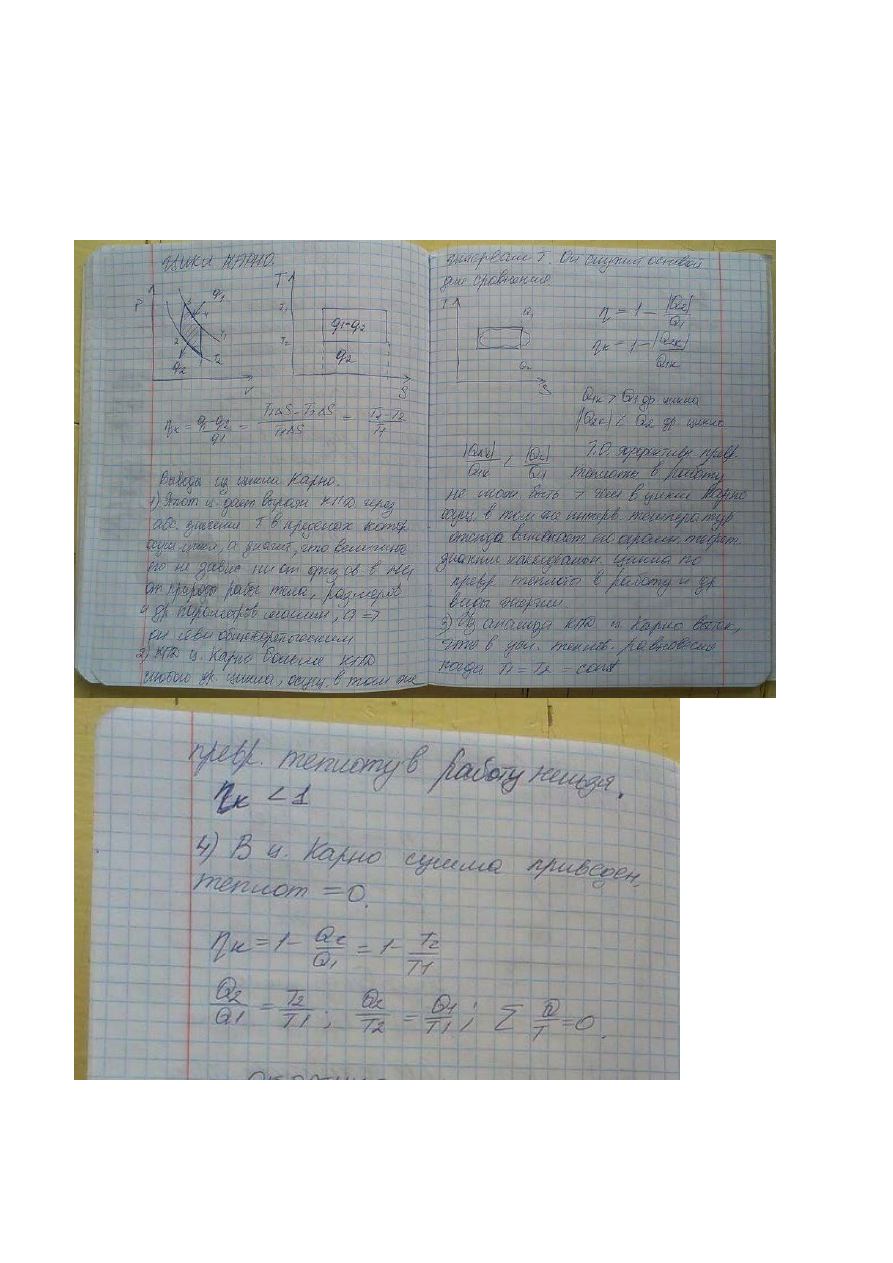 Цикл Карно.
P
q1
1
2
T1
T2
q2
V
T
T1
T2
q1-q2
q2
S
ηк = q1-q2/q1 = T1ΔS-T2ΔS/T1ΔS = T1-T2/T1
Выводы из цикла Карно.
1) Этот ц. дает выраж КПД через
абс. значения T в пределах котор
цикл, а значит, что величина
его не завис ни от
от природы рабо тела, размеров
и др параметров машины, а =>
он
2) КПД ц. Карно больше КПД
любого др. цикла, осущ. в том же
интервале T. Он служит основой
для сравнения
T
Q1
Q2
S
η = 1 - |Q2|/Q1
ηк = 1 - |Q2к|/Q1к
Q1к > Q1 др цикла
|Q2к| < Q2 др цикла
|Q2к|/Q1к < |Q2|/Q1
Т.О. эффективн превр.
теплоты в работу
не может быть > чем в цикле Карно
осущ. в том же интерв. температур
цикла по
превр теплоты в работу и др
виды энергии.
3) Из анализа КПД ц. Карно
что в усл. теплов. равновесия
когда T1 = T2 = const
превр. теплоту в работу нельзя.
ηк < 1
4) В ц. Карно сумма приведен.
теплот = 0.
ηк = 1 - Q2/Q1 = 1 - T2/T1
Q2/Q1 = T2/T1 ; Q2/T2 = Q1/T1 ; Σ Q/T = 0.